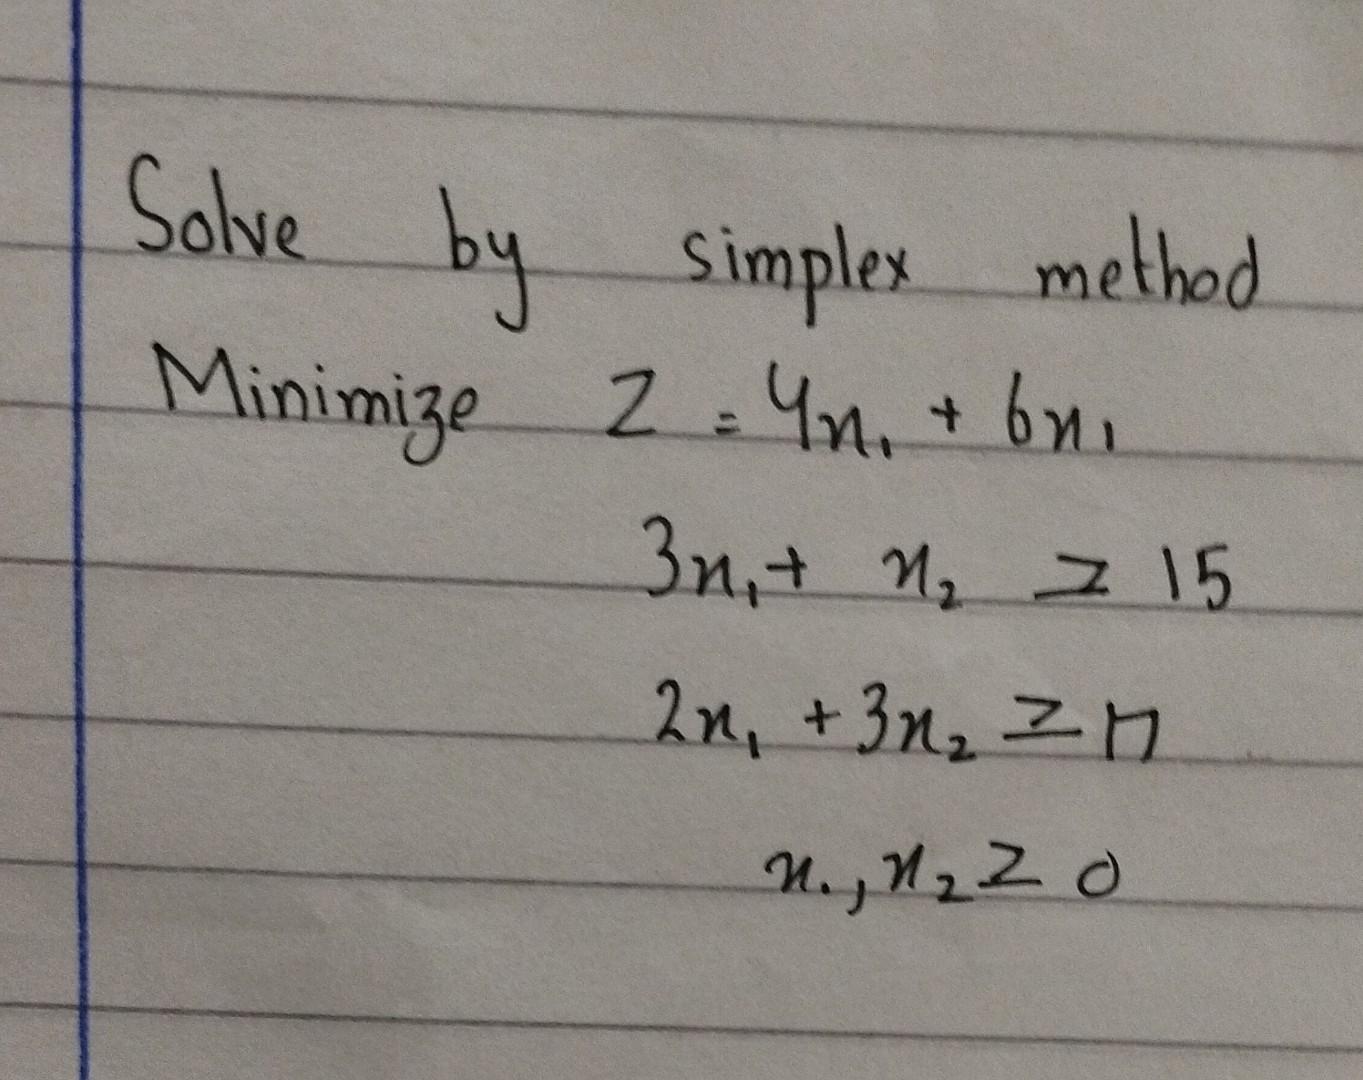 Solve by simplex method
Minimize Z = 4x₁ + 6x₁
3x₁ + x₂ ≥ 15
2x₁ + 3x₂ ≥ 17
x₁, x₂ ≥ 0